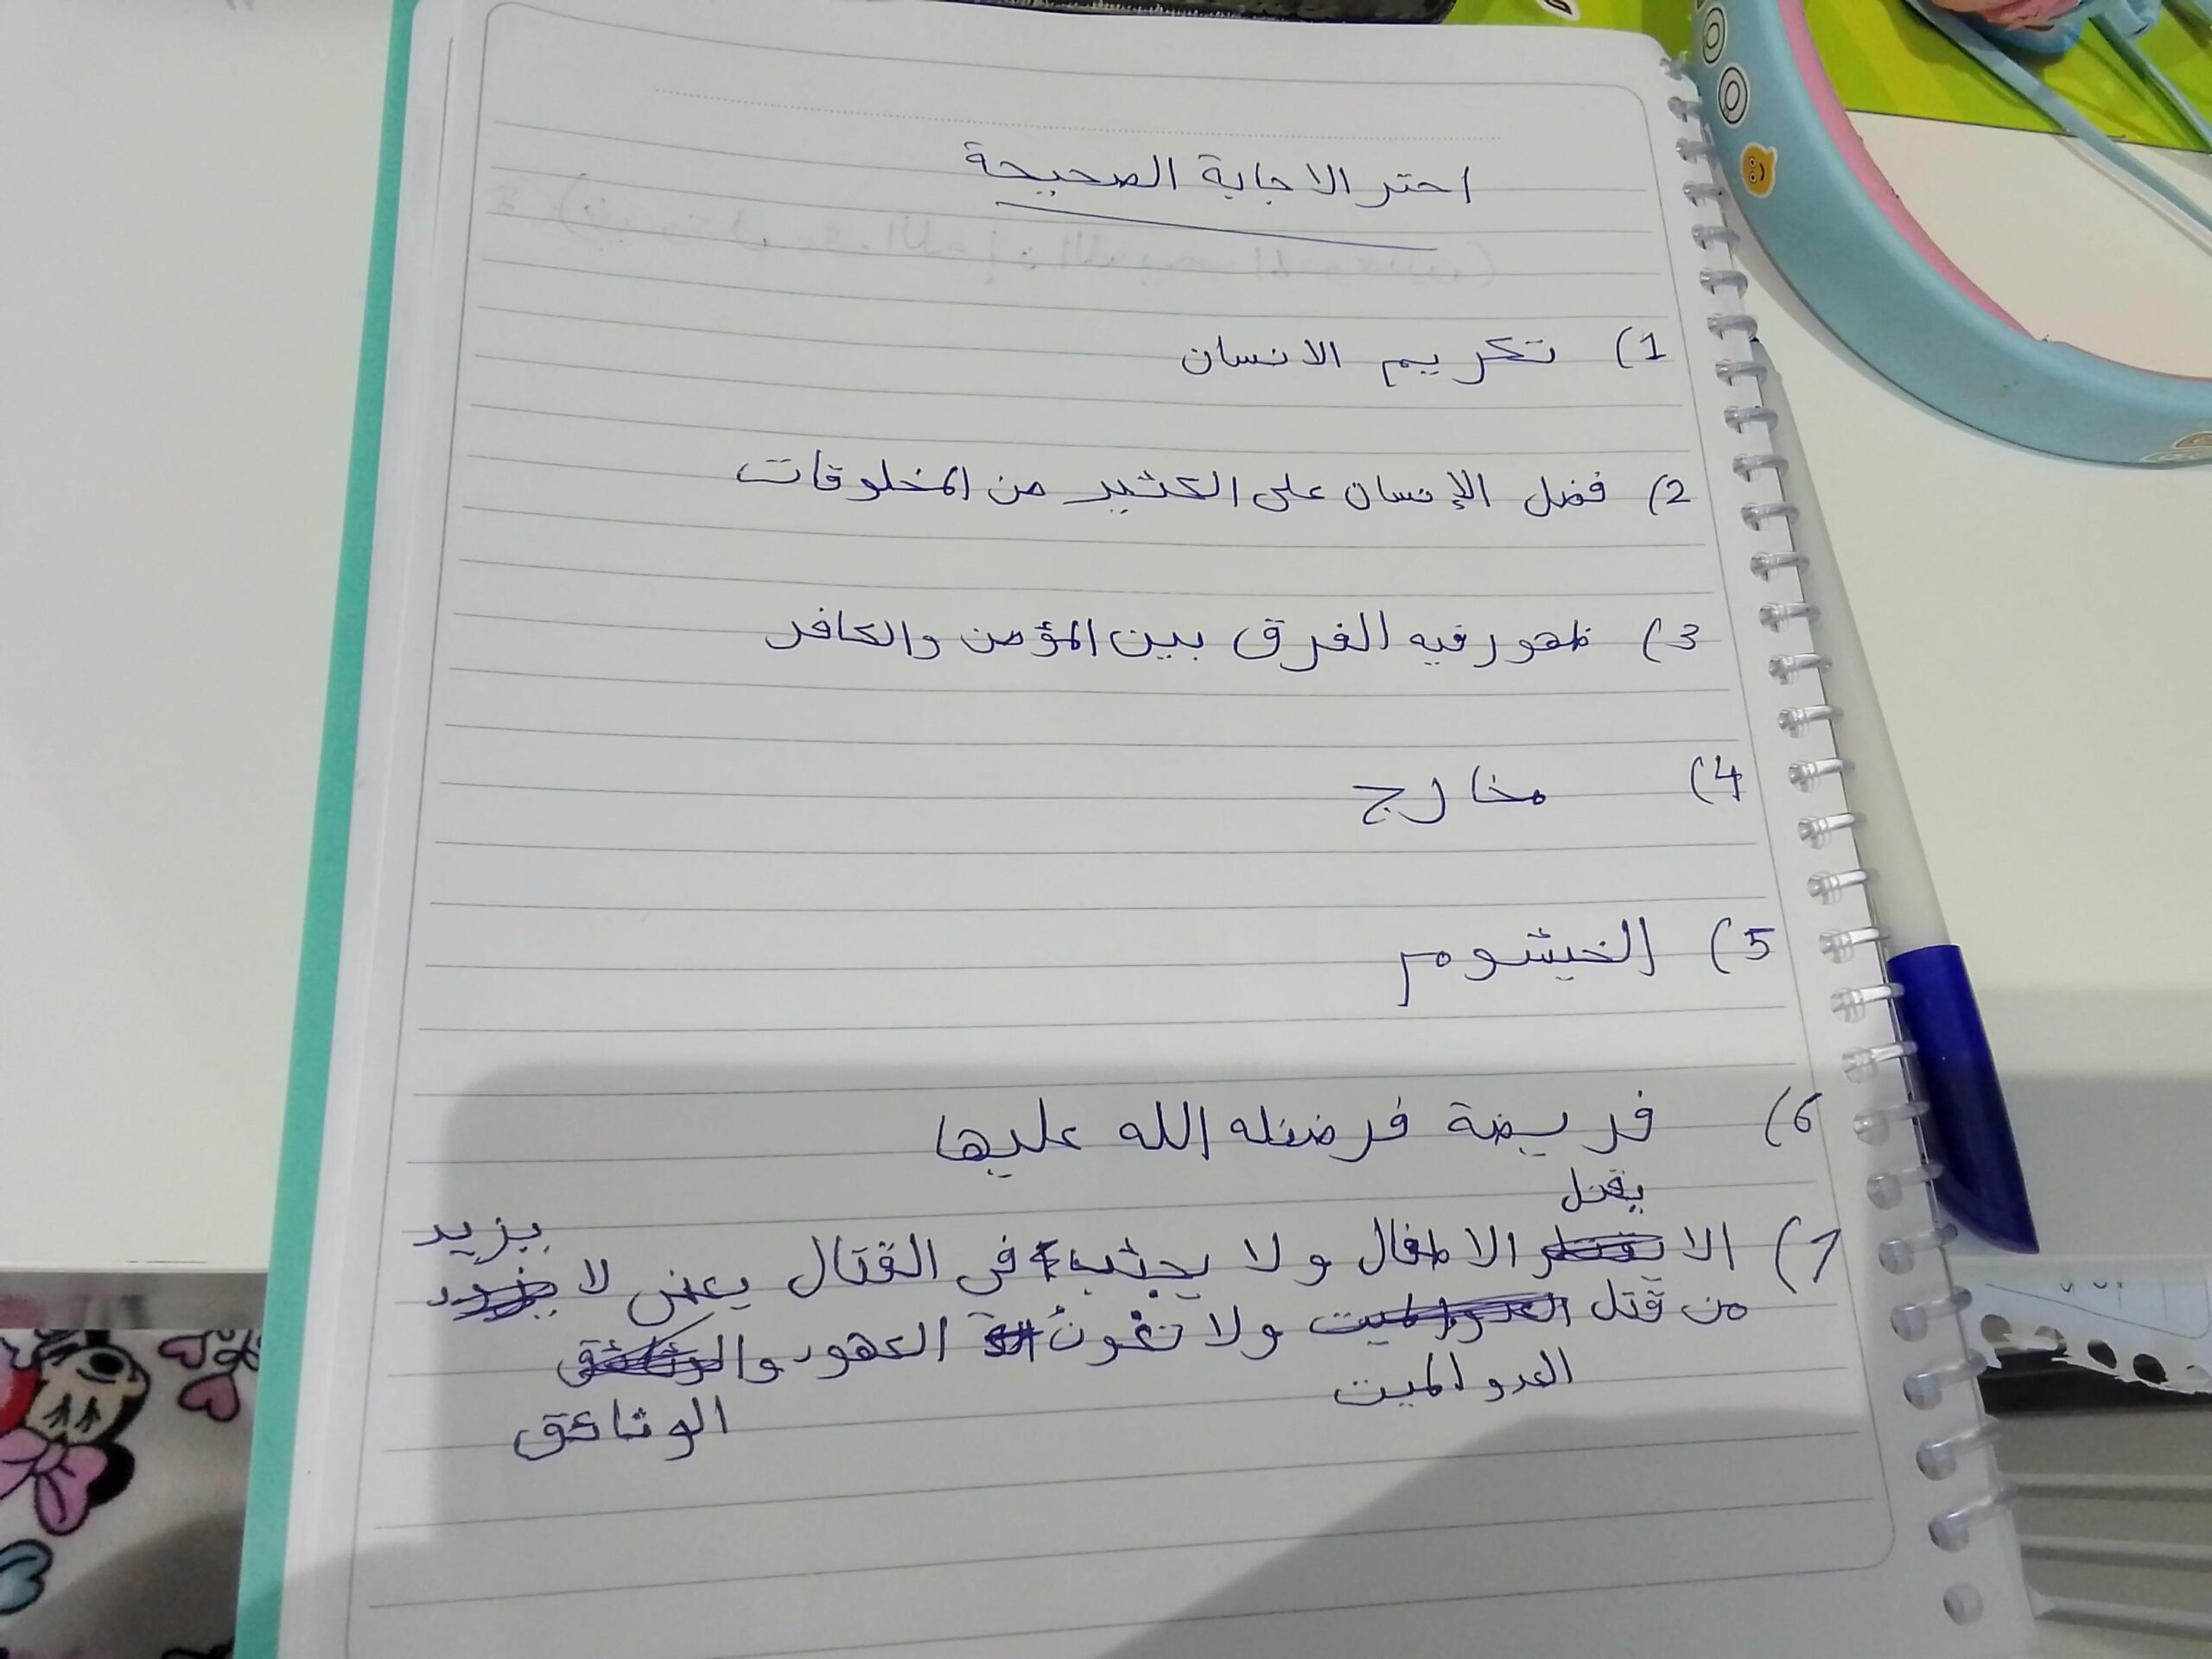 احتر الاجابة الصحيحة
1) تكريم الانسان
2) فضل الإنسان على الكثير من المخلوقات
3) ظهور فيه الفرق بين المؤمن والكافر
4) مخارج
5) الخيشوم
6) فريضة فرضله الله عليها
يقتل
7) الا الاطفال ولا في القتال يعني لا
يزيد
من قتل ولا تخون العهور و
العدو الميت
الوثائق